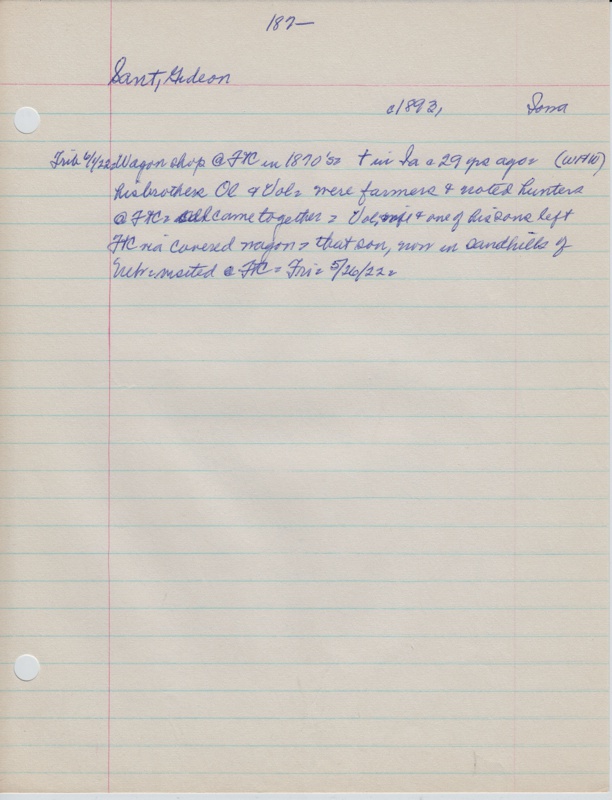 187—
Sant, Gideon
c1893, Iowa
Trib 6/1/22= Wagon shop @ FtC in 1870's= † in Ia c 29 yrs ago= (WHW)
his brothers Ol & Vol= were farmers & noted hunters
@ FtC= all came together = Vol, wife & one of his sons left
FtC via covered wagon= that son, now in sandhills of
Nebr= visited @ FtC= Fri= 5/26/22=